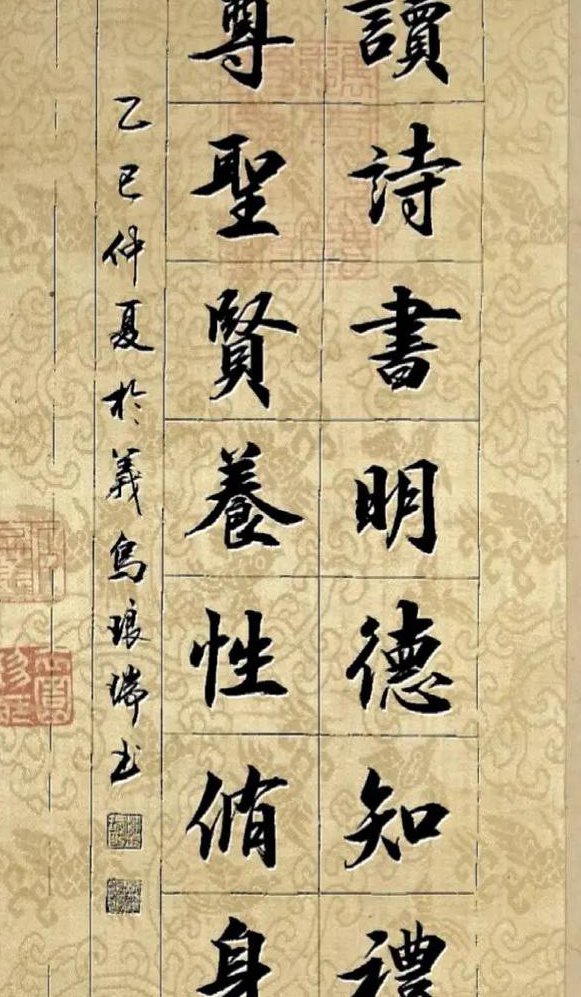 讀詩書明德知禮
尊聖賢養性脩身
乙巳仲夏於義烏琅瑞书